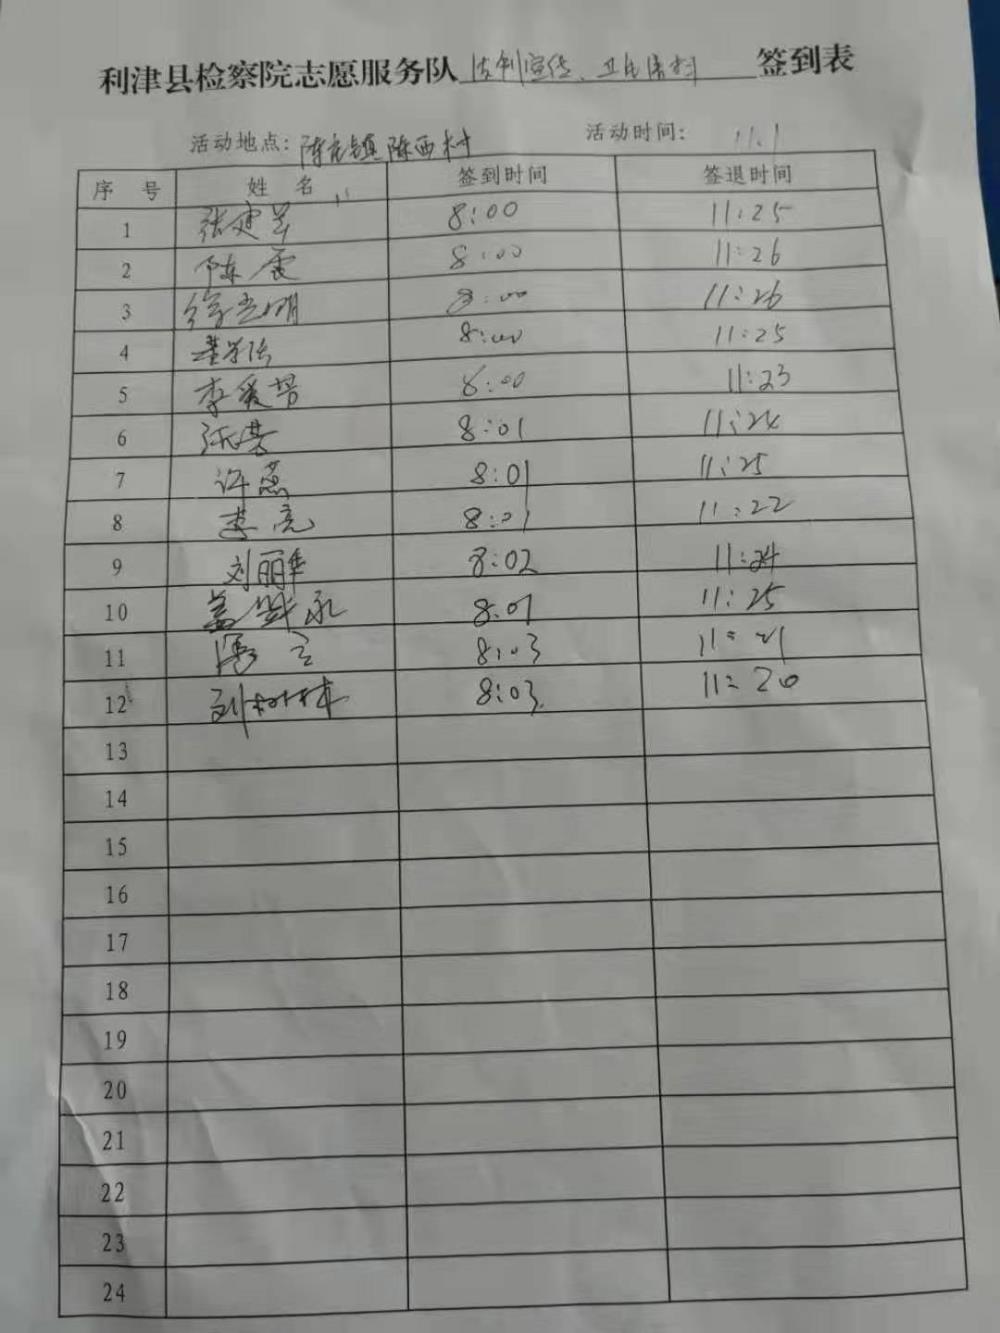 利津县检察院志愿服务队 法制宣传、卫生清扫 签到表
活动地点: 陈庄镇陈西村 活动时间: 11.1
序 号 姓 名 签到时间 签退时间
1 张建 8:00 11:25
2 陈震 8:00 11:26
3 徐光明 8:00 11:26
4 8:00 11:25
5 李爱 8:00 11:23
6 8:01 11:24
7 许燕 8:01 11:25
8 李亮 8:01 11:22
9 刘丽华 8:02 11:24
10 盖 永 8.01 11:25
11 8:03 11:21
12 刘树林 8:03 11:20
13
14
15
16
17
18
19
20
21
22
23
24